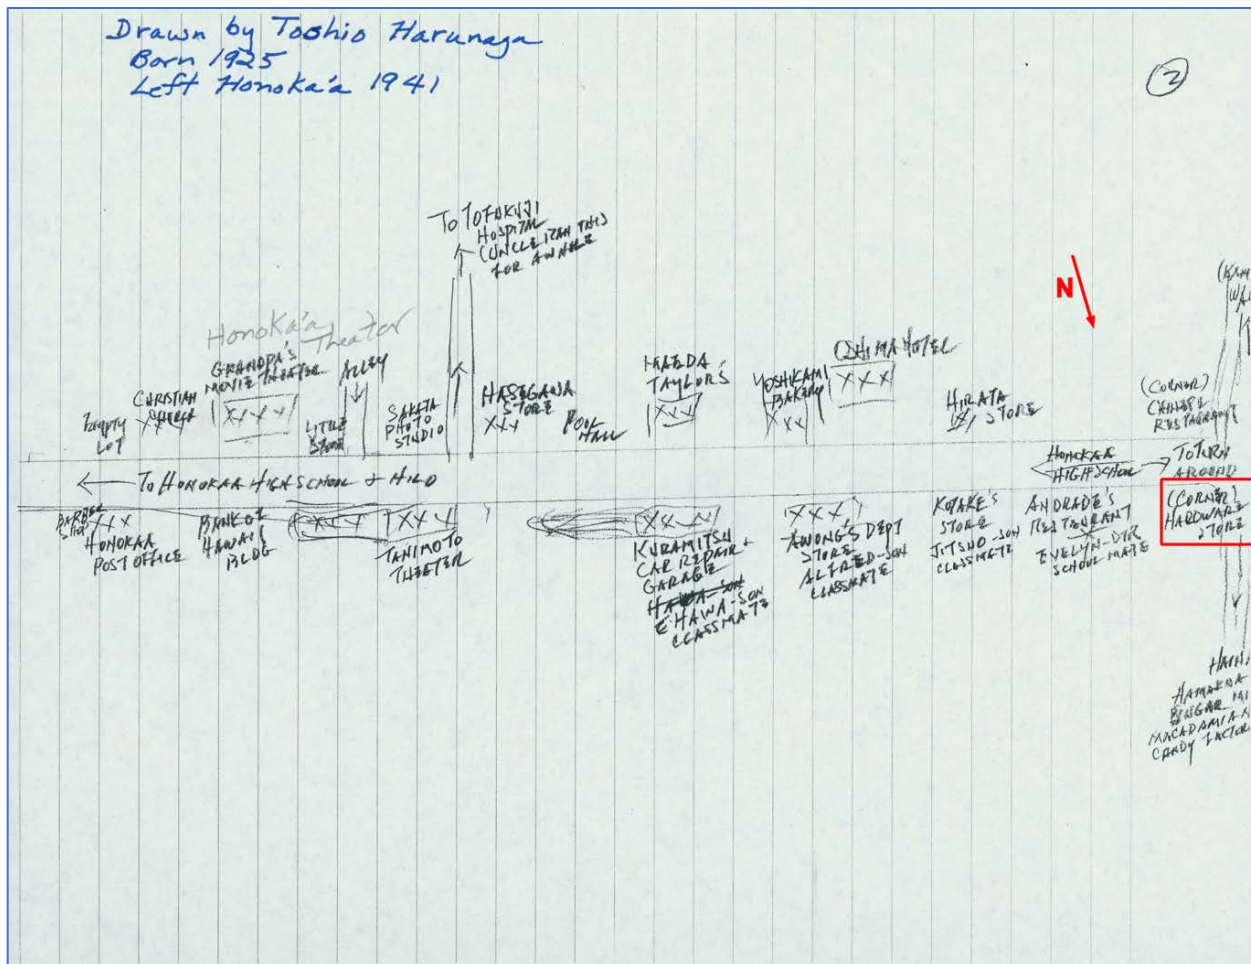 Drawn by Toshio Harunaga
Born 1925
Left Honoka'a 1941
2
To TOFUKUJI
HOSPITAL
(UNCLE
FOR AWHILE
N
Honoka'a
Theater
GRANDPA'S
MOVIE THEATER
ALLEY
CHRISTIAN
CHURCH
XXXX
EMPTY
LOT
LITTLE
STORE
SAKATA
PHOTO
STUDIO
HASEGAWA
STORE
XXX
POOL
HALL
MAEDA
TAYLORS
XXX
YOSHIKAMI
BAKERY
XXX
OSHIMA HOTEL
XXX
HIRATA
STORE
(CORNER)
CHINESE
RESTAURANT
← TO HONOKAA HIGH SCHOOL & HILO
HONOKAA
HIGH SCHOOL
TO TURN
AROUND
BARBER
SHOP
XXX
HONOKAA
POST OFFICE
BANK OF
HAWAII
BLDG
XXX
XXX
TANIMOTO
THEATER
XXX
KURAMITSU
CAR REPAIR &
GARAGE
EHAWA-SON
CLASSMATE
XXX
AWONG'S DEPT
STORE
ALFRED-SON
CLASSMATE
KOTAKE'S
STORE
JITSUO-SON
CLASSMATE
ANDRADE'S
RESTAURANT
EVELYN-DTR
SCHOOL MATE
(CORNER)
HARDWARE
STORE
HAMAKUA
SUGAR MI
MACADAMIA N
CANDY FACTOR